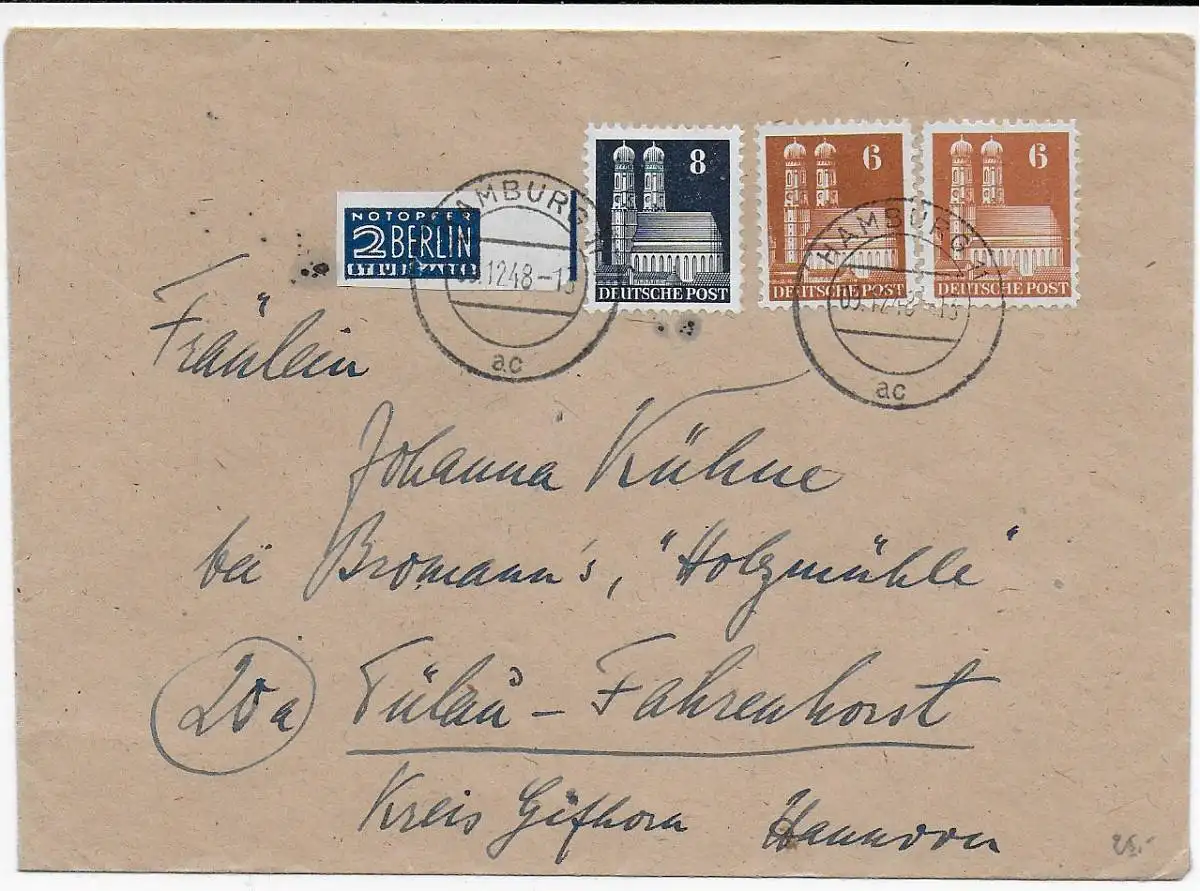 8
6
6
DEUTSCHE POST
DEUTSCHE POST
DEUTSCHE POST
NOTOPFER
2 BERLIN
STEUERMARKE
HAMBURG
.12.48-13
ac
HAMBURG
ac
Fräulein
Johanna Kühne
bei Bromann's, "Holzmühle"
20a Tülau - Fahrenhorst
Kreis Gifhorn Hannover
25.-